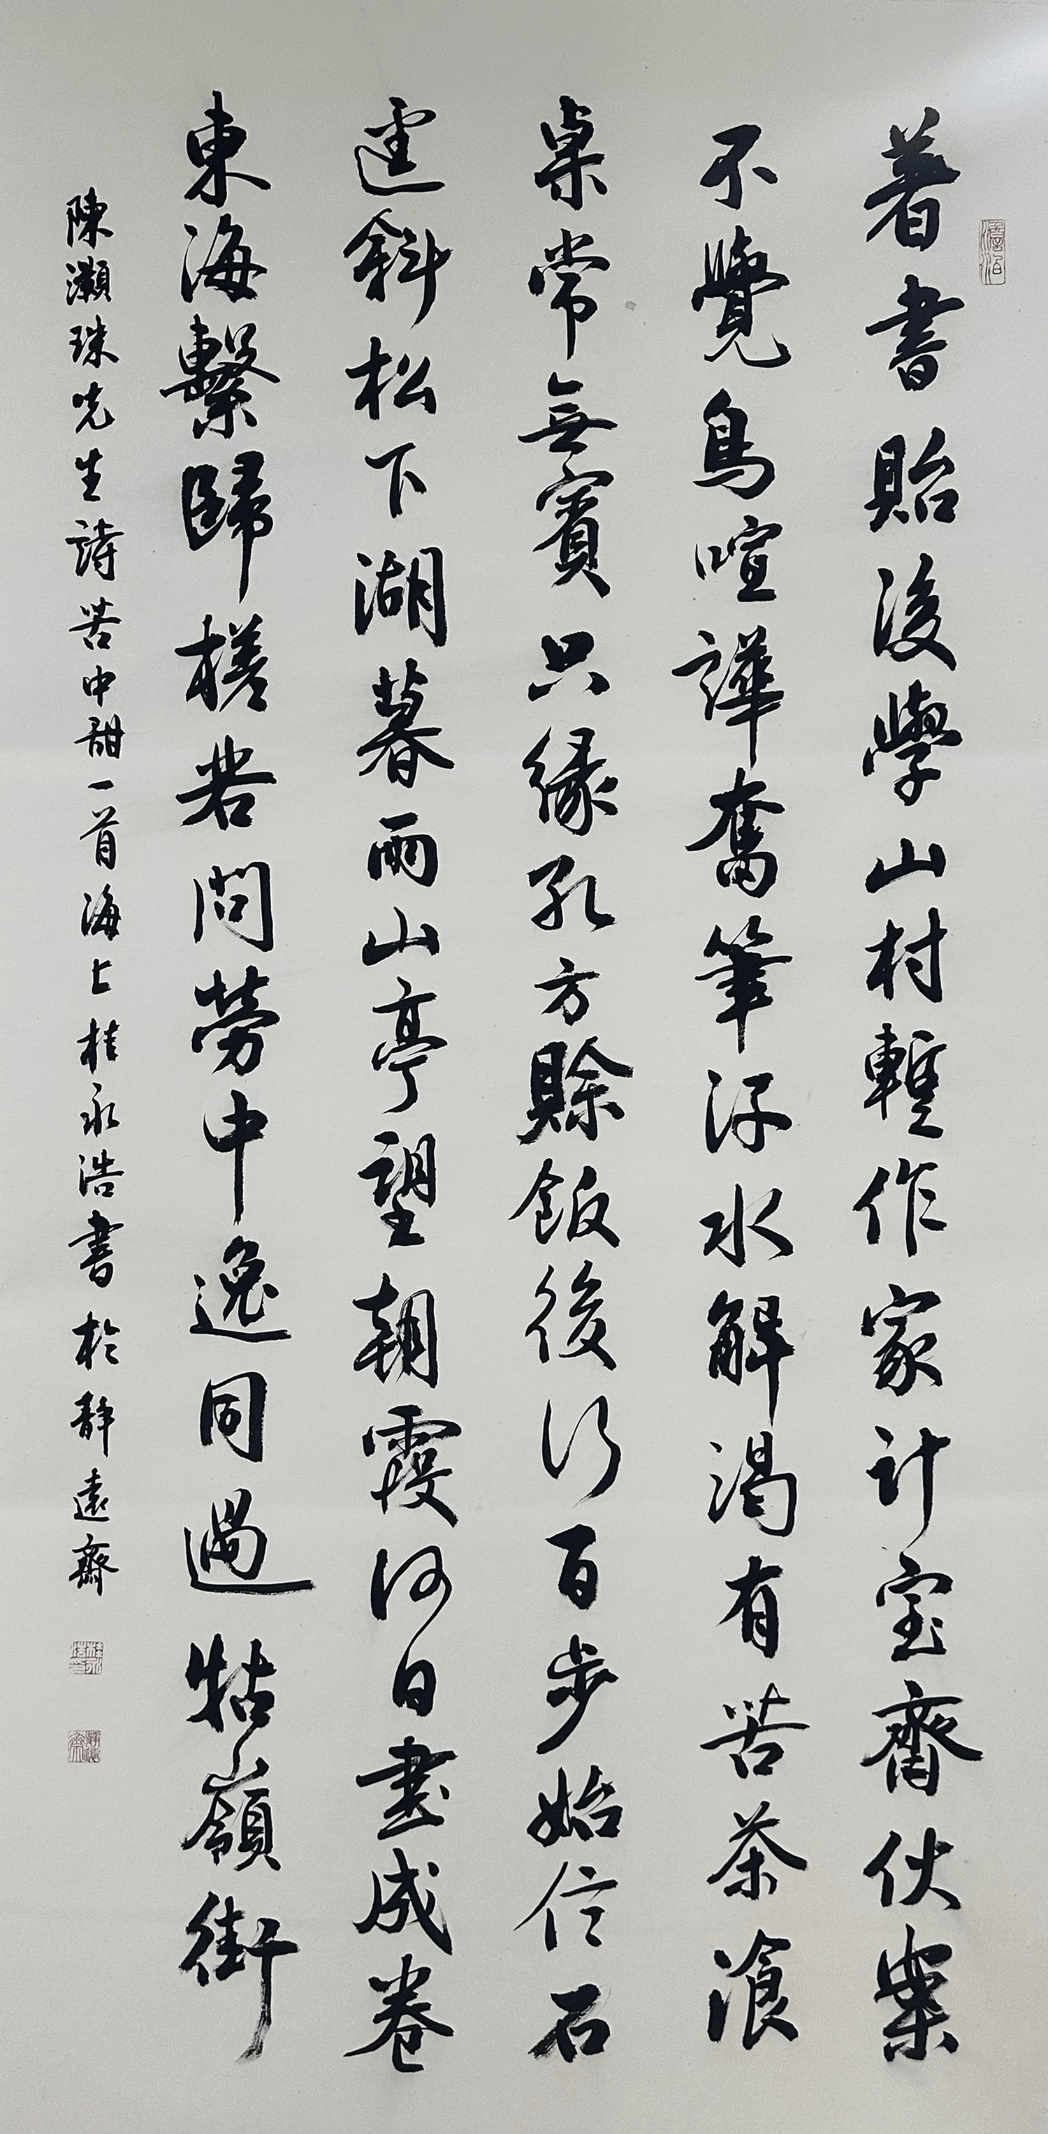 著書貽後學山村暫作家計室齋伏案
不覺鳥喧譁奮筆汗水解渴有苦茶飡
桌常無賓只緣孔方賒飯後行百步始信石
逕斜松下湖暮雨山亭望朝霞何日書成卷
東海繫歸槎君問勞中逸同過牯嶺街
陳灝珠先生詩苦中甜一首海上桂永浩書於靜遠齋